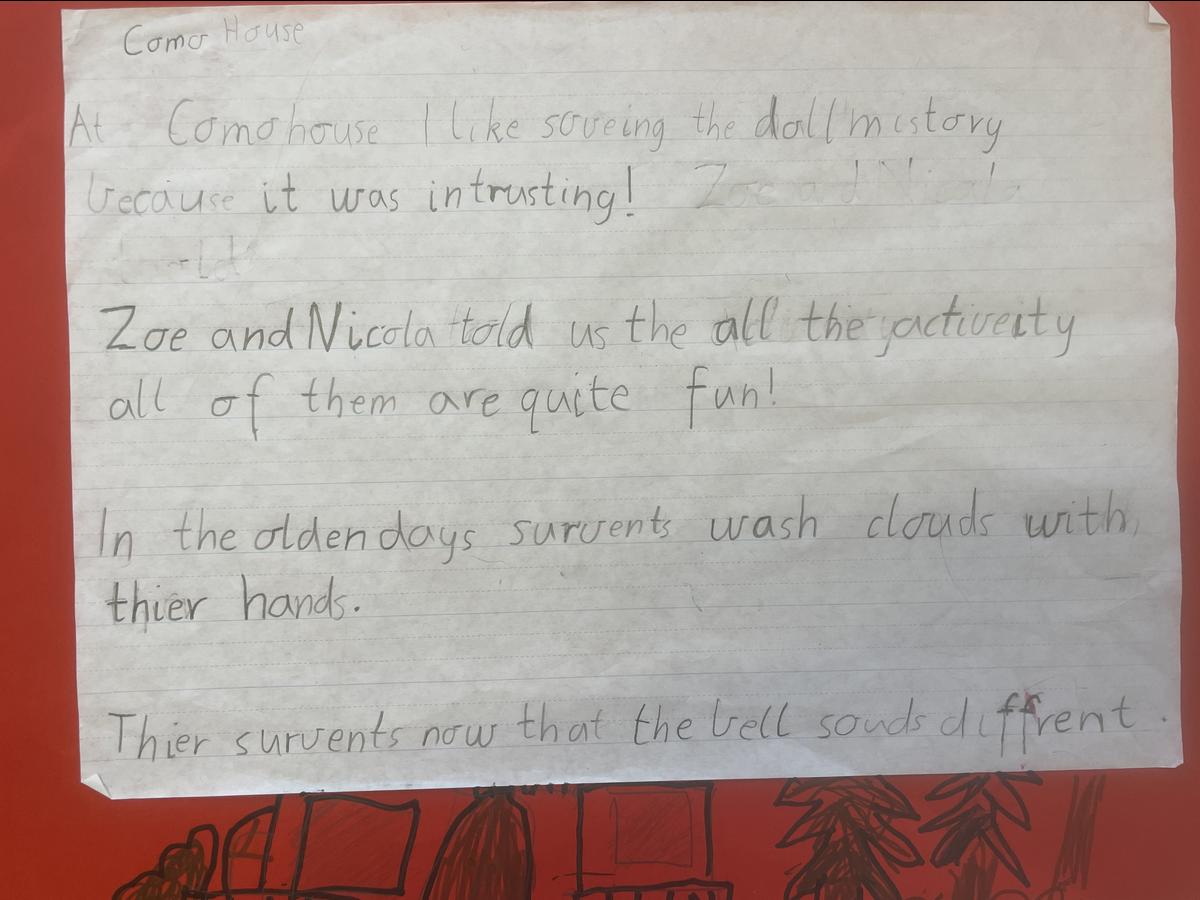 Como House
At Comohouse I like soveing the doll mistory
because it was intrusting!
Zoe and Nicola told us the all the activeity
all of them are quite fun!
In the olden days survents wash clouds with
thier hands.
Thier survents now that the bell souds diffrent.